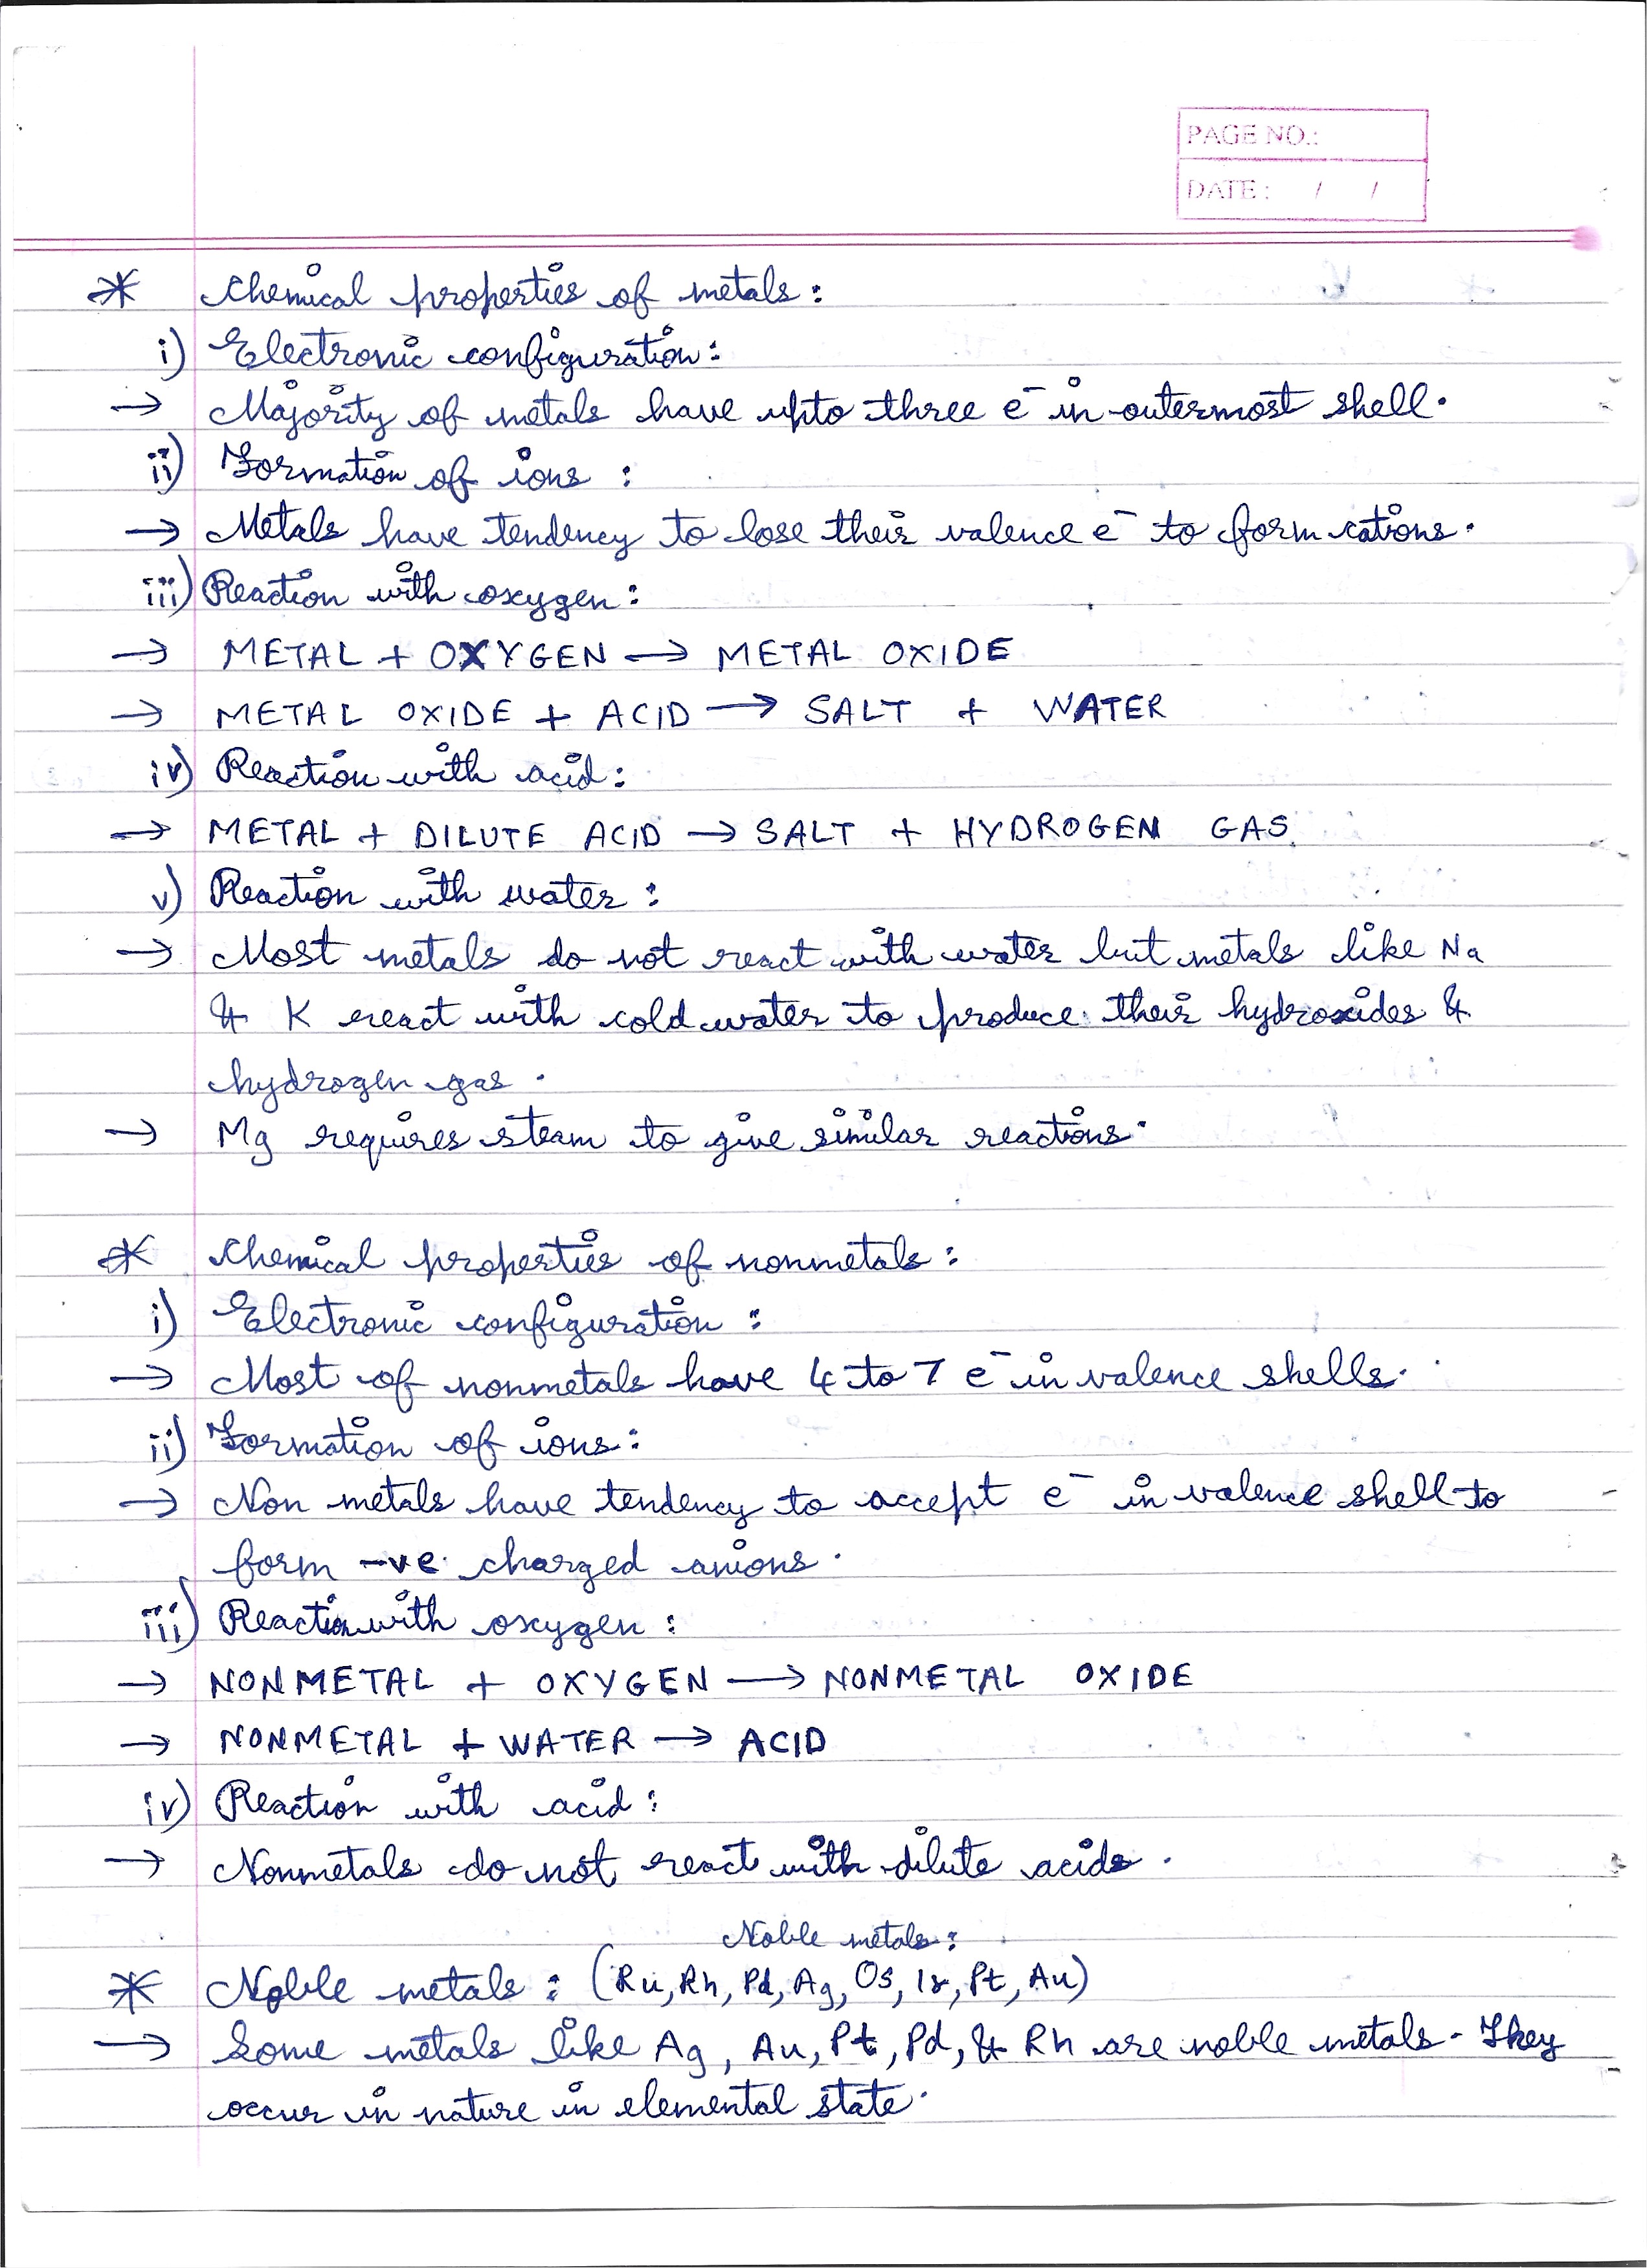 PAGE NO.:
DATE : / /
* Chemical properties of metals :
i) Electronic configuration :
→ Majority of metals have upto three e⁻ in outermost shell.
ii) Formation of ions :
→ Metals have tendency to lose their valence e⁻ to form cations.
iii) Reaction with oxygen :
→ METAL + OXYGEN → METAL OXIDE
→ METAL OXIDE + ACID → SALT + WATER
iv) Reaction with acid :
→ METAL + DILUTE ACID → SALT + HYDROGEN GAS.
v) Reaction with water :
→ Most metals do not react with water but metals like Na
& K react with cold water to produce their hydroxides &
hydrogen gas.
→ Mg requires steam to give similar reactions.
* Chemical properties of nonmetals :
i) Electronic configuration :
→ Most of nonmetals have 4 to 7 e⁻ in valence shells.
ii) Formation of ions :
→ Non metals have tendency to accept e⁻ in valence shell to
form -ve charged anions.
iii) Reaction with oxygen :
→ NONMETAL + OXYGEN → NONMETAL OXIDE
→ NONMETAL + WATER → ACID
iv) Reaction with acid :
→ Nonmetals do not react with dilute acids.
Noble metals :
* Noble metals : (Ru, Rh, Pd, Ag, Os, Ir, Pt, Au)
→ Some metals like Ag, Au, Pt, Pd, & Rh are noble metals. They
occur in nature in elemental state.